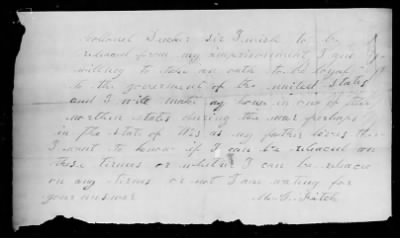 colonel sir I wish to be
released from my imprisonment I am
willing to take an oath to be loyal
to the goverment of the united states
and I will make my home in one of the
northern states during the war perhaps
in the state of as my father lives there
I want to know if I can be released on
these termes or whether I can be releace
on any terms or not I am wating for
your answer M.